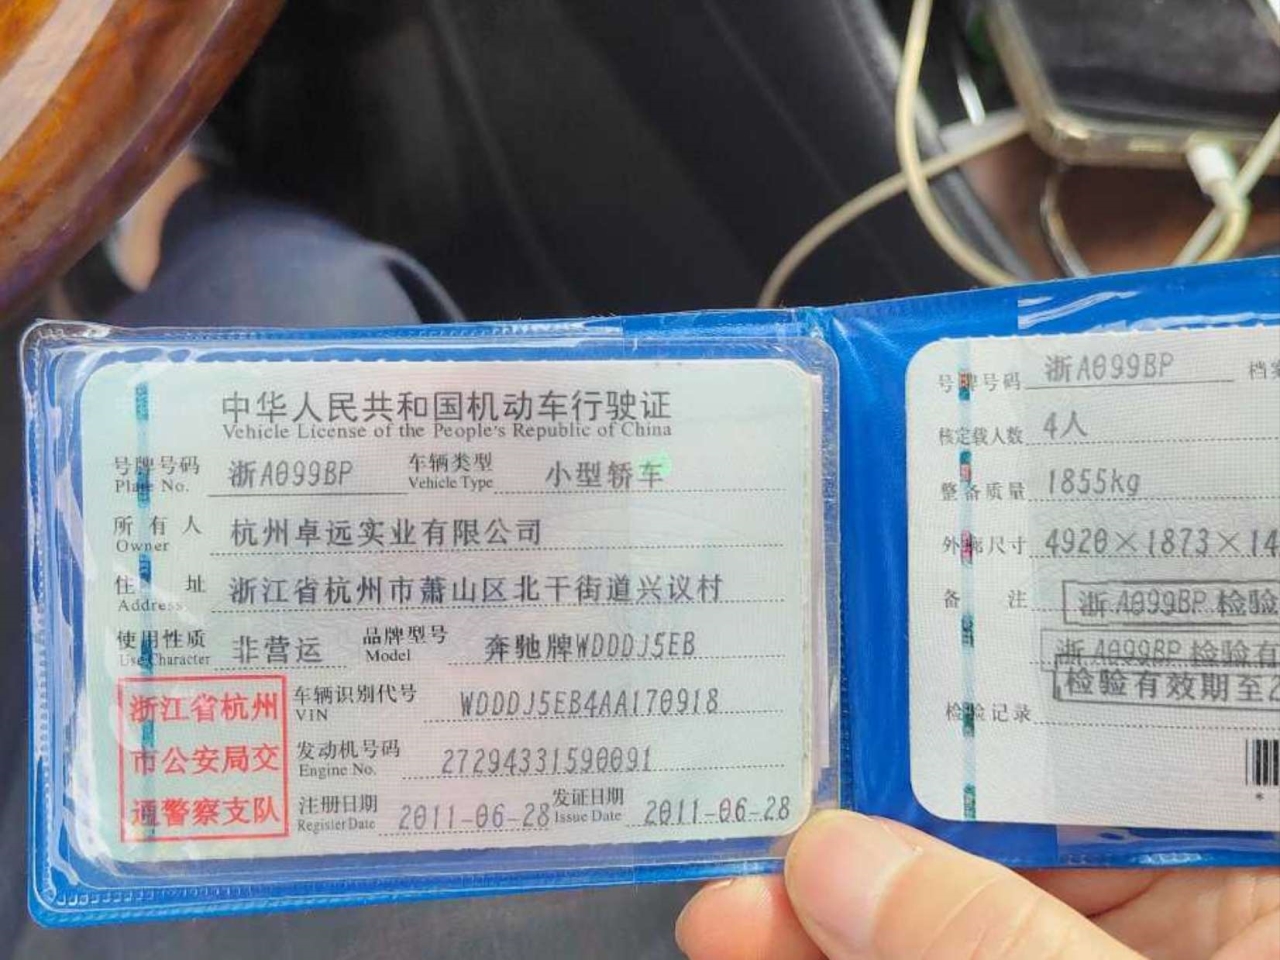 中华人民共和国机动车行驶证
Vehicle License of the People's Republic of China
号牌号码 浙A099BP 车辆类型 小型轿车
Plate No. Vehicle Type
所有人 杭州卓远实业有限公司
Owner
住址 浙江省杭州市萧山区北干街道兴议村
Address
使用性质 非营运 品牌型号 奔驰牌WDDDJ5EB
Use Character Model
浙江省杭州
市公安局交
通警察支队
车辆识别代号 WDDDJ5EB4AA170918
VIN
发动机号码 27294331590091
Engine No.
注册日期 2011-06-28 发证日期 2011-06-28
Register Date Issue Date
号牌号码 浙A099BP 档案
核定载人数 4人
整备质量 1855kg
外廓尺寸 4920×1873×14
备注 浙A099BP 检验
浙A099BP 检验有
检验有效期至2
检验记录
*